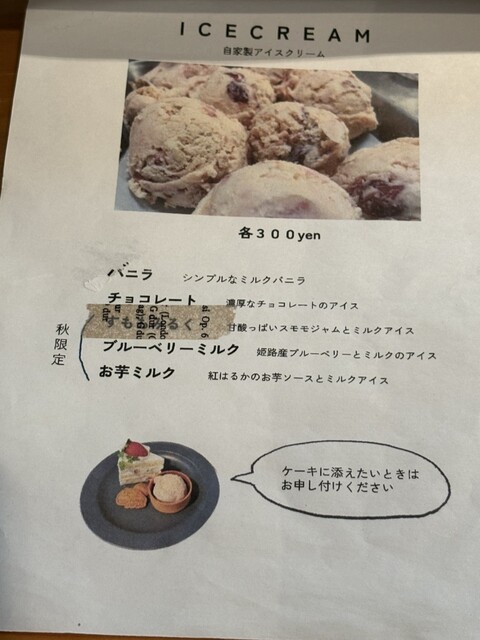 ICECREAM
自家製アイスクリーム
各300yen
バニラ シンプルなミルクバニラ
チョコレート 濃厚なチョコレートのアイス
すも るく 甘酸っぱいスモモジャムとミルクアイス
ブルーベリーミルク 姫路産ブルーベリーとミルクのアイス
お芋ミルク 紅はるかのお芋ソースとミルクアイス
秋限定
ケーキに添えたいときは
お申し付けください